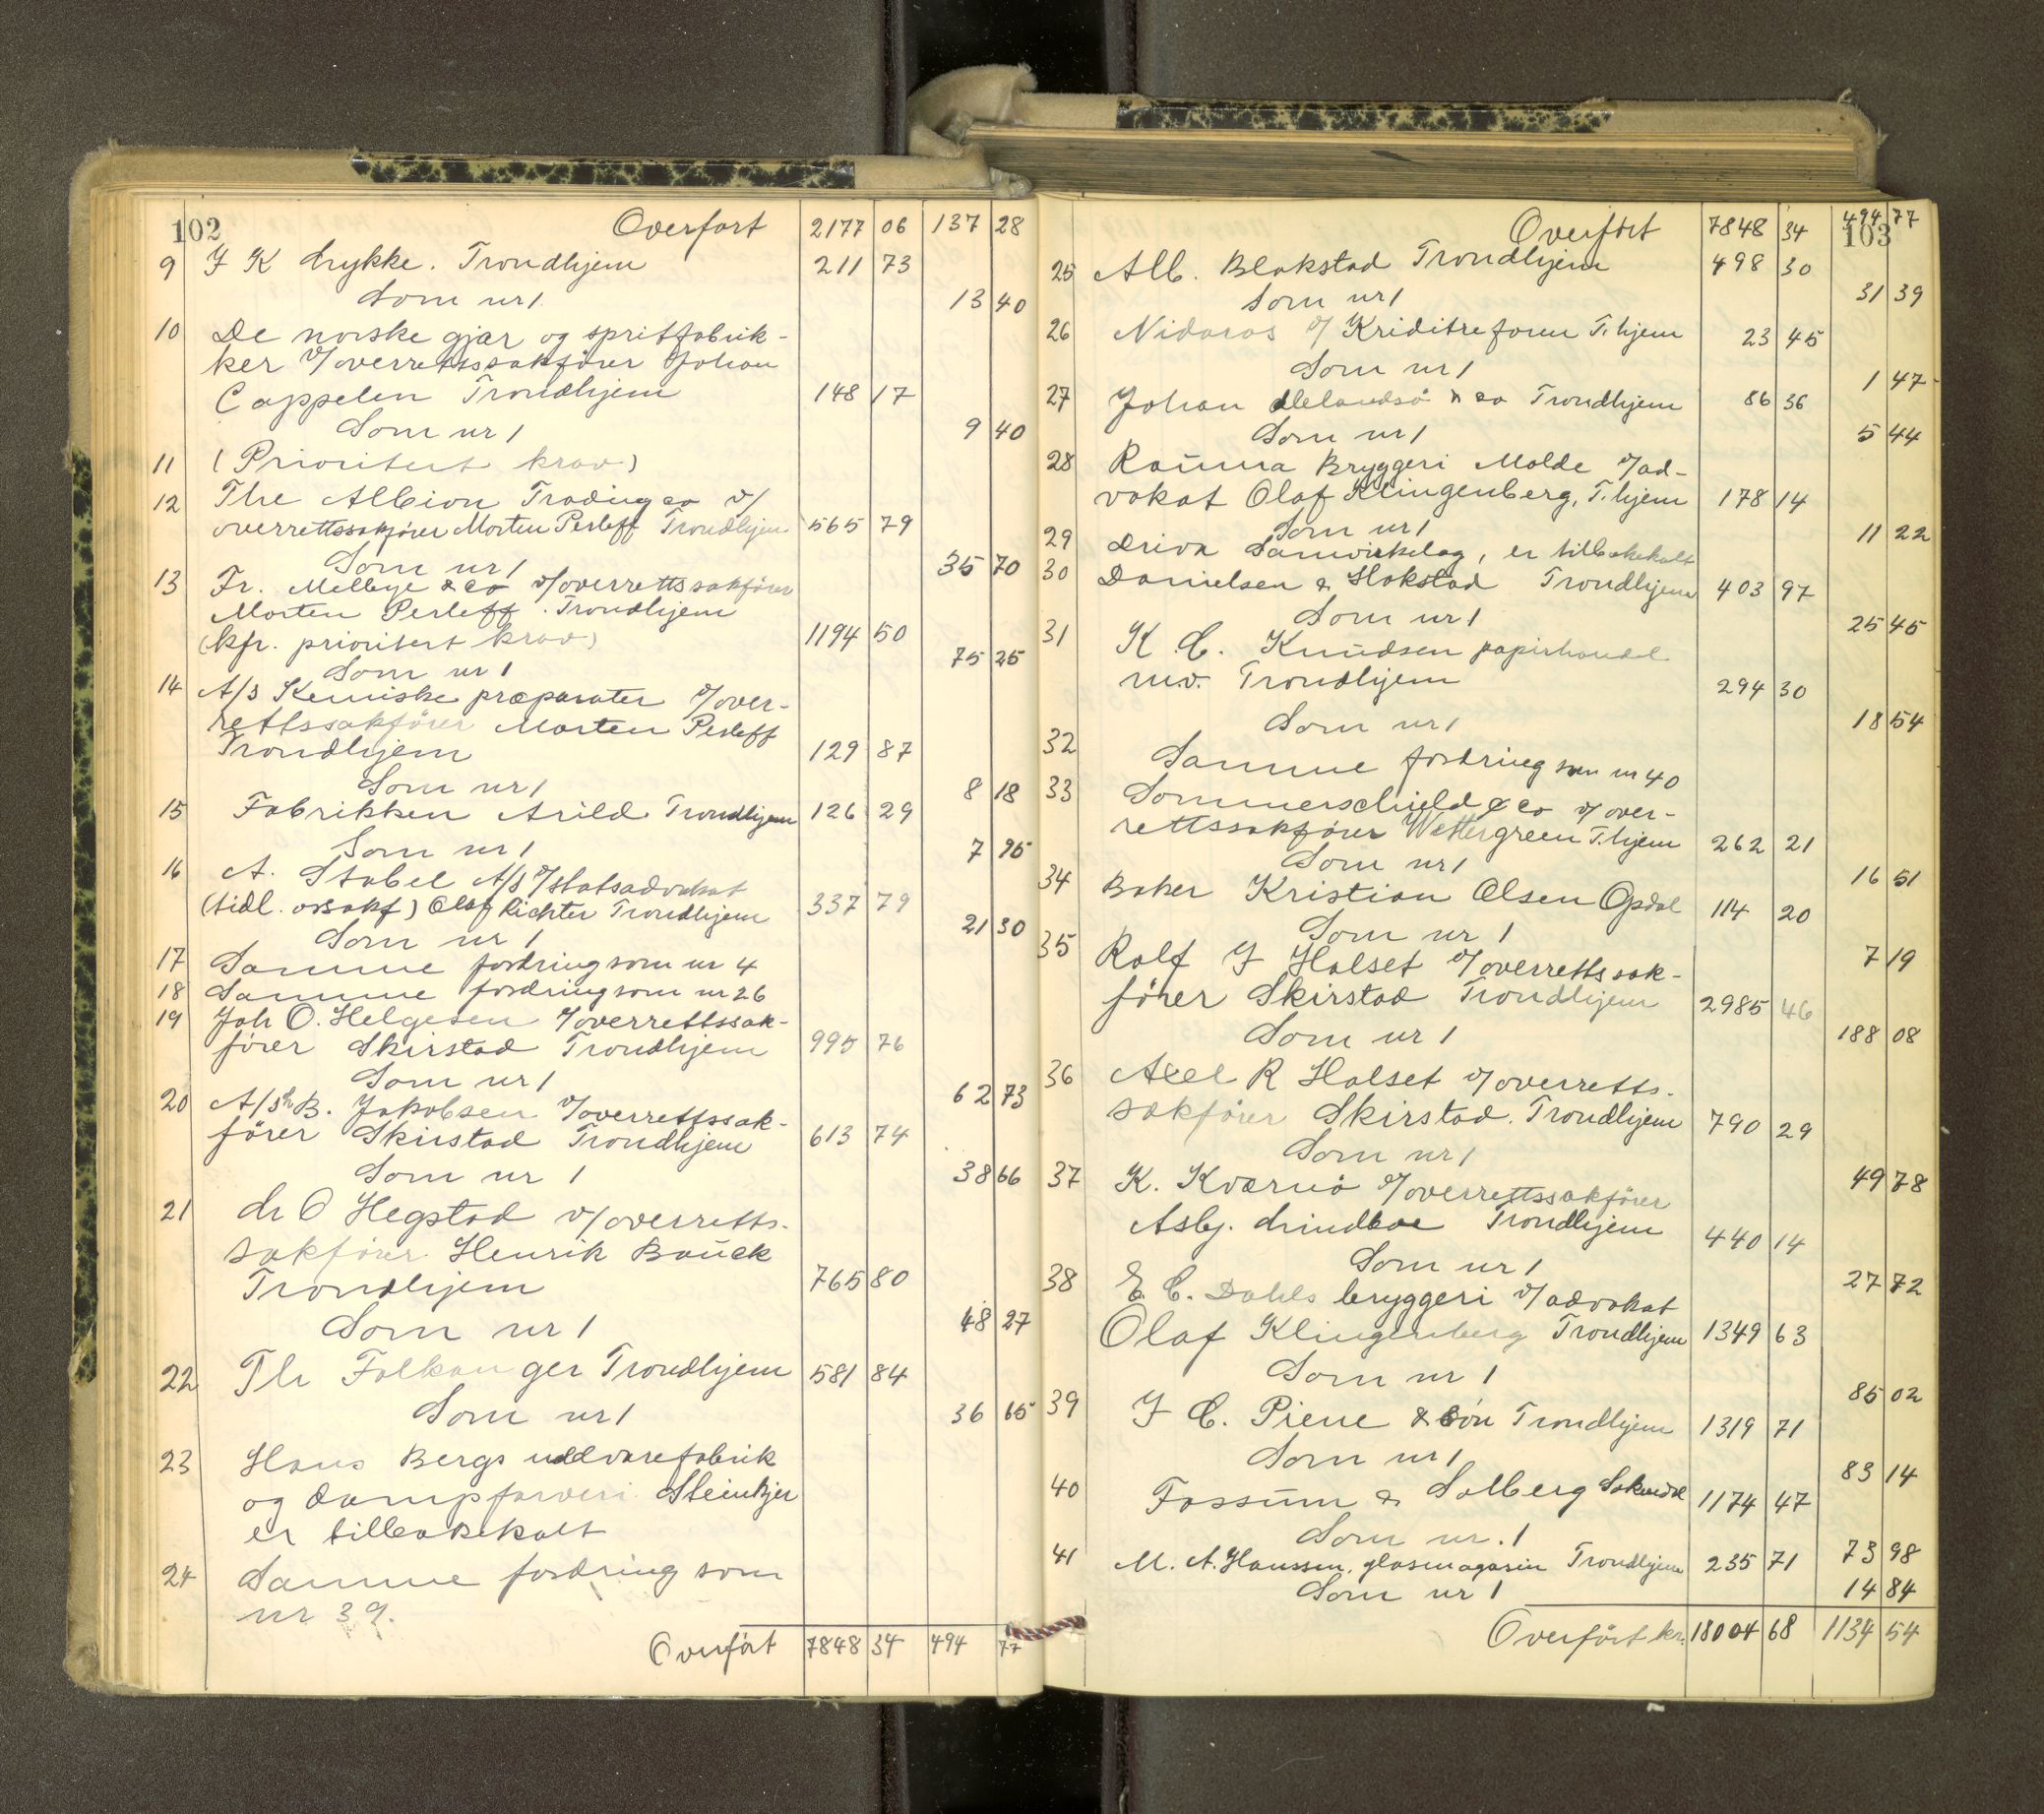 102 Overført 2177 06 137 28
9 J K Lykke. Trondhjem 211 73
Som nr 1. 13 40
10 De norske gjær og spritfabrik-
ker v/overrettssakfører Johan
Cappelen Trondhjem 148 17
Som nr 1 9 40
11 (Prioritert krav)
12 The Albion Trading co v/
overrettssakfører Morten Perleff Trondhjem 565 79
Som nr 1 35 70
13 Fr. Melbye & co v/overrettssakfører
Morten Perleff. Trondhjem
(kfr. prioritert krav) 1194 50
Som nr 1 75 25
14 A/S Kemiske præparater v/over-
rettssakfører Morten Perleff
Trondhjem 129 87
Som nr 1 8 18
15 Fabrikken Arild Trondhjem 126 29
Som nr 1 7 95
16 A. Stabel A/S v/statsadvokat
(tidl. orsakf) Olaf Richter Trondhjem 337 79
Som nr 1 21 30
17 Samme fordring som nr 4
18 Samme fordring som nr 26
19 Joh O. Helgesen v/overrettssak-
fører Skirstad Trondhjem 995 76
Som nr 1 62 73
20 A/S B. Jakobsen v/overrettssak-
fører Skirstad Trondhjem 613 74
Som nr 1 38 66
21 L O Hegstad v/overretts-
sakfører Henrik Bauck
Trondhjem 765 80
Som nr 1 48 27
22 Th Falkanger Trondhjem 581 84
Som nr 1 36 65
23 Hans Bergs uldvarefabrik
og dampfarveri Steinkjer
er tilbakekalt
24 Samme fordring som
nr 39.
Overført 7848 34 494 77
Overført 7848 34 494 77
103
25 Alb. Blakstad Trondhjem 498 30
Som nr 1 31 39
26 Nidaros v/ Kriditreforen T.hjem 23 45
Som nr 1 1 47
27 Johan & co Trondhjem 86 36
Som nr 1 5 44
28 Rauma Bryggeri Molde v/ad-
vokat Olaf Klingenberg, T.hjem 178 14
Som nr 1 11 22
29 Driva Samvirkelag, er tilbakekalt
30 Danielsen & Hokstad Trondhjem 403 97
Som nr 1 25 45
31 K C. Knudsen papirhandel
m.v. Trondhjem 294 30
Som nr 1 18 54
32 Samme fordring som nr 40
33 Sommerschield & co v/over-
rettssakfører Wettergreen T.hjem 262 21
Som nr 1 16 51
34 Baker Kristian Olsen Opdal 114 20
Som nr 1 7 19
35 Rolf J Halset v/overrettssak-
fører Skirstad Trondhjem 2985 46
Som nr 1 188 08
36 Axel R Halset v/overretts-
sakfører Skirstad. Trondhjem 790 29
Som nr 1 49 78
37 K. Kværnø v/overrettssakfører
Asbj. Lindboe Trondhjem 440 14
Som nr 1 27 72
38 E. C. Dahls bryggeri v/advokat
Olaf Klingenberg Trondhjem 1349 63
Som nr 1 85 02
39 J C. Piene & søn Trondhjem 1319 71
Som nr 1 83 14
40 Fossum & Solberg Soknedal 1174 47
Som nr. 1 73 98
41 M. A. Hanssen, glasmagasin Trondhjem 235 71
Som nr 1 14 84
Overført kr. 18004 68 1134 54